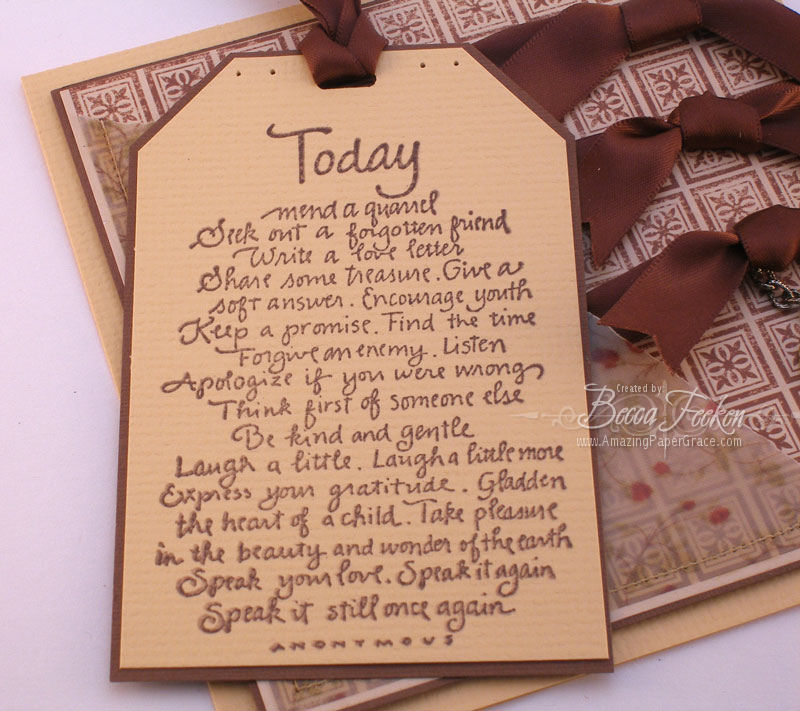 Today
mend a quarrel
Seek out a forgotten friend
Write a love letter
Share some treasure. Give a
soft answer. Encourage youth
Keep a promise. Find the time
Forgive an enemy. Listen
Apologize if you were wrong
Think first of someone else
Be kind and gentle
Laugh a little. Laugh a little more
Express your gratitude. Gladden
the heart of a child. Take pleasure
in the beauty and wonder of the earth
Speak your love. Speak it again
Speak it still once again
ANONYMOUS
Created by:
Becca Feeken
www.AmazingPaperGrace.com